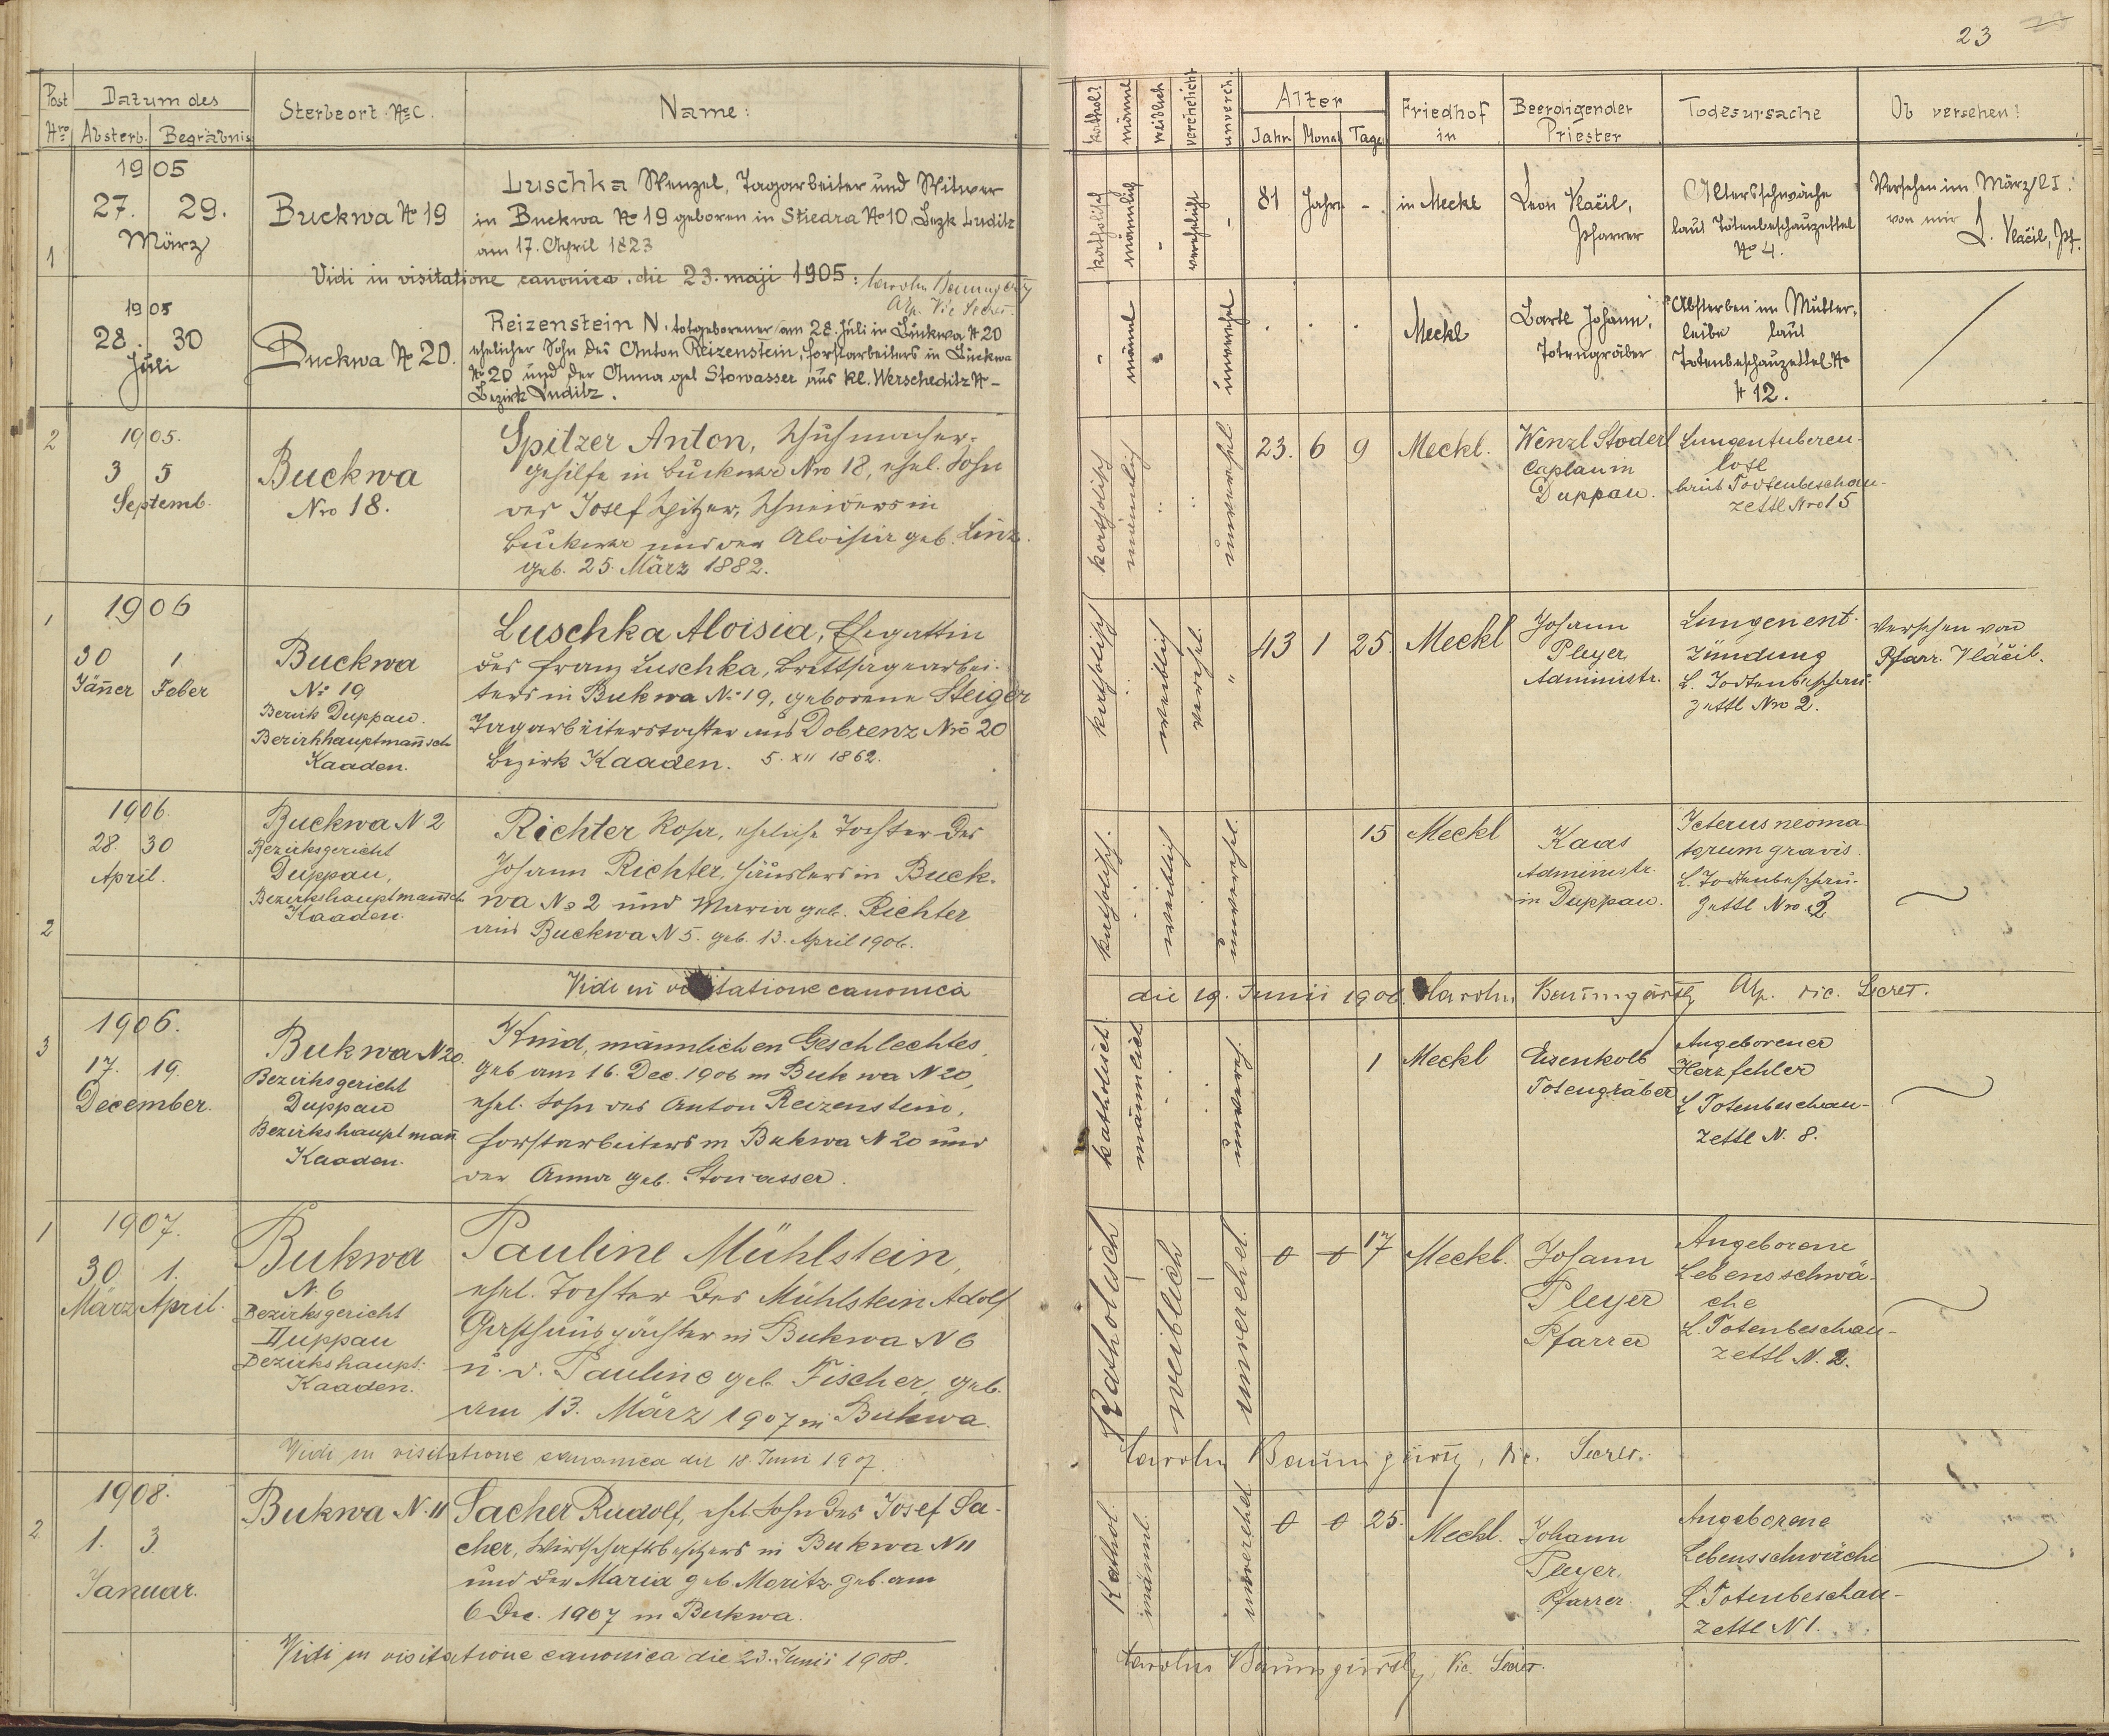 23
Post Nro
Datum des
Absterb. Begräbnis
Sterbeort № C.
Name:
kathol?
männl
weiblich
verehelicht
unvereh.
Alter
Jahr Monat Tage
Friedhof in
Beerdigender Priester
Todesursache
Ob versehen?
1
1905
27. 29.
März
Buckwa № 19
Luschka Wenzel, Tagarbeiter und Witwer
in Buckwa № 19 geboren in Stiedra № 10, Bezk Luditz
am 17. April 1823
katholisch
männlich
-
verehelicht
-
81 Jahre -
in Meckl
Leon Vlačil,
Pfarrer
Altersschwäche
laut Totenbeschauzettel
№ 4.
Versehen im März l I.
von mir L. Vlačil, Pf.
Vidi in visitatione canonica, die 23. maji 1905:
1905
28. 30
Juli
Buckwa № 20.
Reizenstein N. totgeborener am 28. Juli in Buckwa № 20
ehelicher Sohn des Anton Reizenstein, Forstarbeiters in Buckwa
№ 20 und der Anna geb Stowasser aus Kl. Werscheditz № -
Bezirk Luditz.
männl
unverehel
Meckl
Bartl Johann,
Totengräber
Absterben im Mutter,
leibe laut
Totenbeschauzettel №
№ 12.
2
1905.
3 5
Septemb.
Buckwa
Nro 18.
Spitzer Anton, Schuhmacher-
gehilfe in Buckwa Nro 18, ehel. Sohn
des Josef Spitzer, Schneiders in
Buckwa und der Aloisia geb. Linz.
geb. 25. März 1882.
katholisch
männlich
unverehel
23. 6 9
Meckl.
Wenzl Stoderl
Caplan in
Duppau.
Lungentubercu-
lose
laut Todtenbeschau-
zettl Nro 15
1
1906
30 1
Jäner Feber
Buckwa
N: 19
Bezirk Duppau.
Bezirkhauptmañsch
Kaaden.
Luschka Aloisia, Ehegattin
des Franz Luschka, Brettsägearbei-
ters in Bukwa N: 19, geborene Steiger
Tagarbeiterstochter aus Dobrenz Nro 20
Bezirk Kaaden. 5. XII 1862.
katholisch
weiblich
verehel.
"
43 1 25.
Meckl
Johann
Pleyer
Administr.
Lungenent-
zündung
L. Todtenbeschau-
zettl Nro 2.
Versehen von
Pfarr. Vláčil.
2
1906.
28. 30
April.
Buckwa N 2
Bezirksgericht
Duppau,
Bezirkshauptmañsch
Kaaden.
Richter Rosa, eheliche Tochter des
Johann Richter, Häuslers in Buck-
wa No 2 und Maria geb. Richter
aus Buckwa N 5. geb. 13. April 1906.
katholisch.
weiblich
unverehel.
15
Meckl
Kaas
Administr.
in Duppau.
Icterus neoma
torum gravis.
L. Todtenbeschau-
zettl Nro 3
Vidi in visitatione canonica
die 19. Junii 1906. Carolus Baumgärtl, Vic. Secret.
3
1906.
17. 19.
December.
Bukwa N 20
Bezirksgericht
Duppau
Bezirkshauptmañ
Kaaden.
Kind, männlichen Geschlechtes,
geb am 16. Dec. 1906 in Bukwa N 20,
ehel. Sohn des Anton Reizenstein,
Forstarbeiters in Bukwa N 20 und
der Anna geb. Stowasser.
katholisch
männlich
unvereh.
1
Meckl
Eisenkolb
Totengräber
Angeborener
Herzfehler
L Totenbeschau-
zettl N. 8.
1
1907.
30 1.
März April.
Bukwa
N. 6
Bezirksgericht
Duppau
Bezirkshaupt.
Kaaden.
Pauline Mühlstein,
ehel. Tochter des Mühlstein Adolf
Gasthauspächter in Bukwa N 6
u. d. Pauline geb. Fischer, geb.
am 13. März 1907 in Bukwa.
Katholisch
weiblich
unverehel.
0 0 17
Meckl.
Johann
Pleyer
Pfarrer
Angeborene
Lebensschwä-
che
L. Totenbeschau-
zettl N. 2.
Vidi in visitatione canonica die 18. Juni 1907.
Carolus Baumgärtl, Vic. Secret.
2
1908.
1. 3
Januar.
Bukwa N. 11
Sacher Rudolf, ehel Sohn des Josef Sa-
cher, Wirtschaftsbesitzers in Bukwa N 11
und der Maria geb. Moritz geb. am
6 Dec. 1907 in Bukwa.
Kathol.
männl.
unverehel
0 0 25.
Meckl.
Johann
Pleyer
Pfarrer.
Angeborene
Lebensschwäche
L Totenbeschau-
zettl N 1.
Vidi in visitatione canonica die 23. Junii 1908.
Carolus Baumgärtl, Vic. Secret.